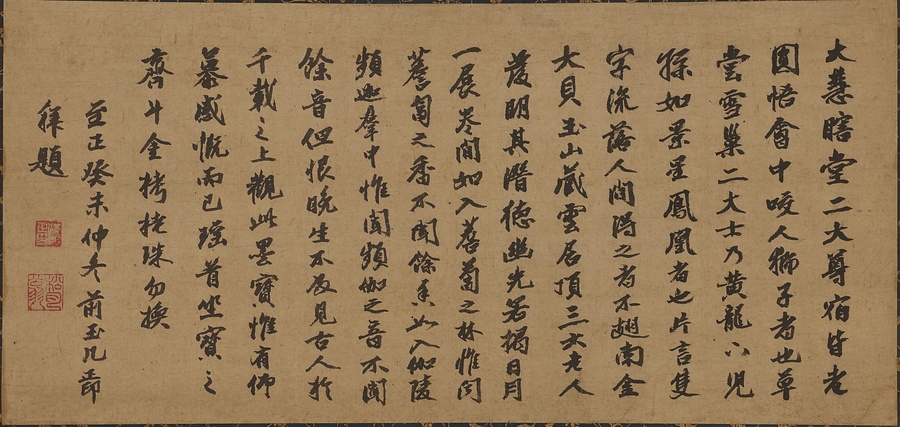 大慧瞎堂二大尊宿皆老
圜悟會中咬人獅子者也草
堂雪巢二大士乃黃龍下兒
孫如景星鳳凰者也片言隻
字流落人間得之者不翅南金
大貝玉山藏雲居頂三大老人
發明其潛德幽光若揭日月
一展卷間如入薝蔔之林惟聞
薝蔔之香不聞餘香如入伽陵
頻迦羣中惟聞頻伽之音不聞
餘音但恨晚生不及見古人於
千載之上觀此墨寶惟有仰
慕感慨而已瑶首坐寶之
齊斗金栲栳珠勿換
至正癸未仲冬前玉几
拜題